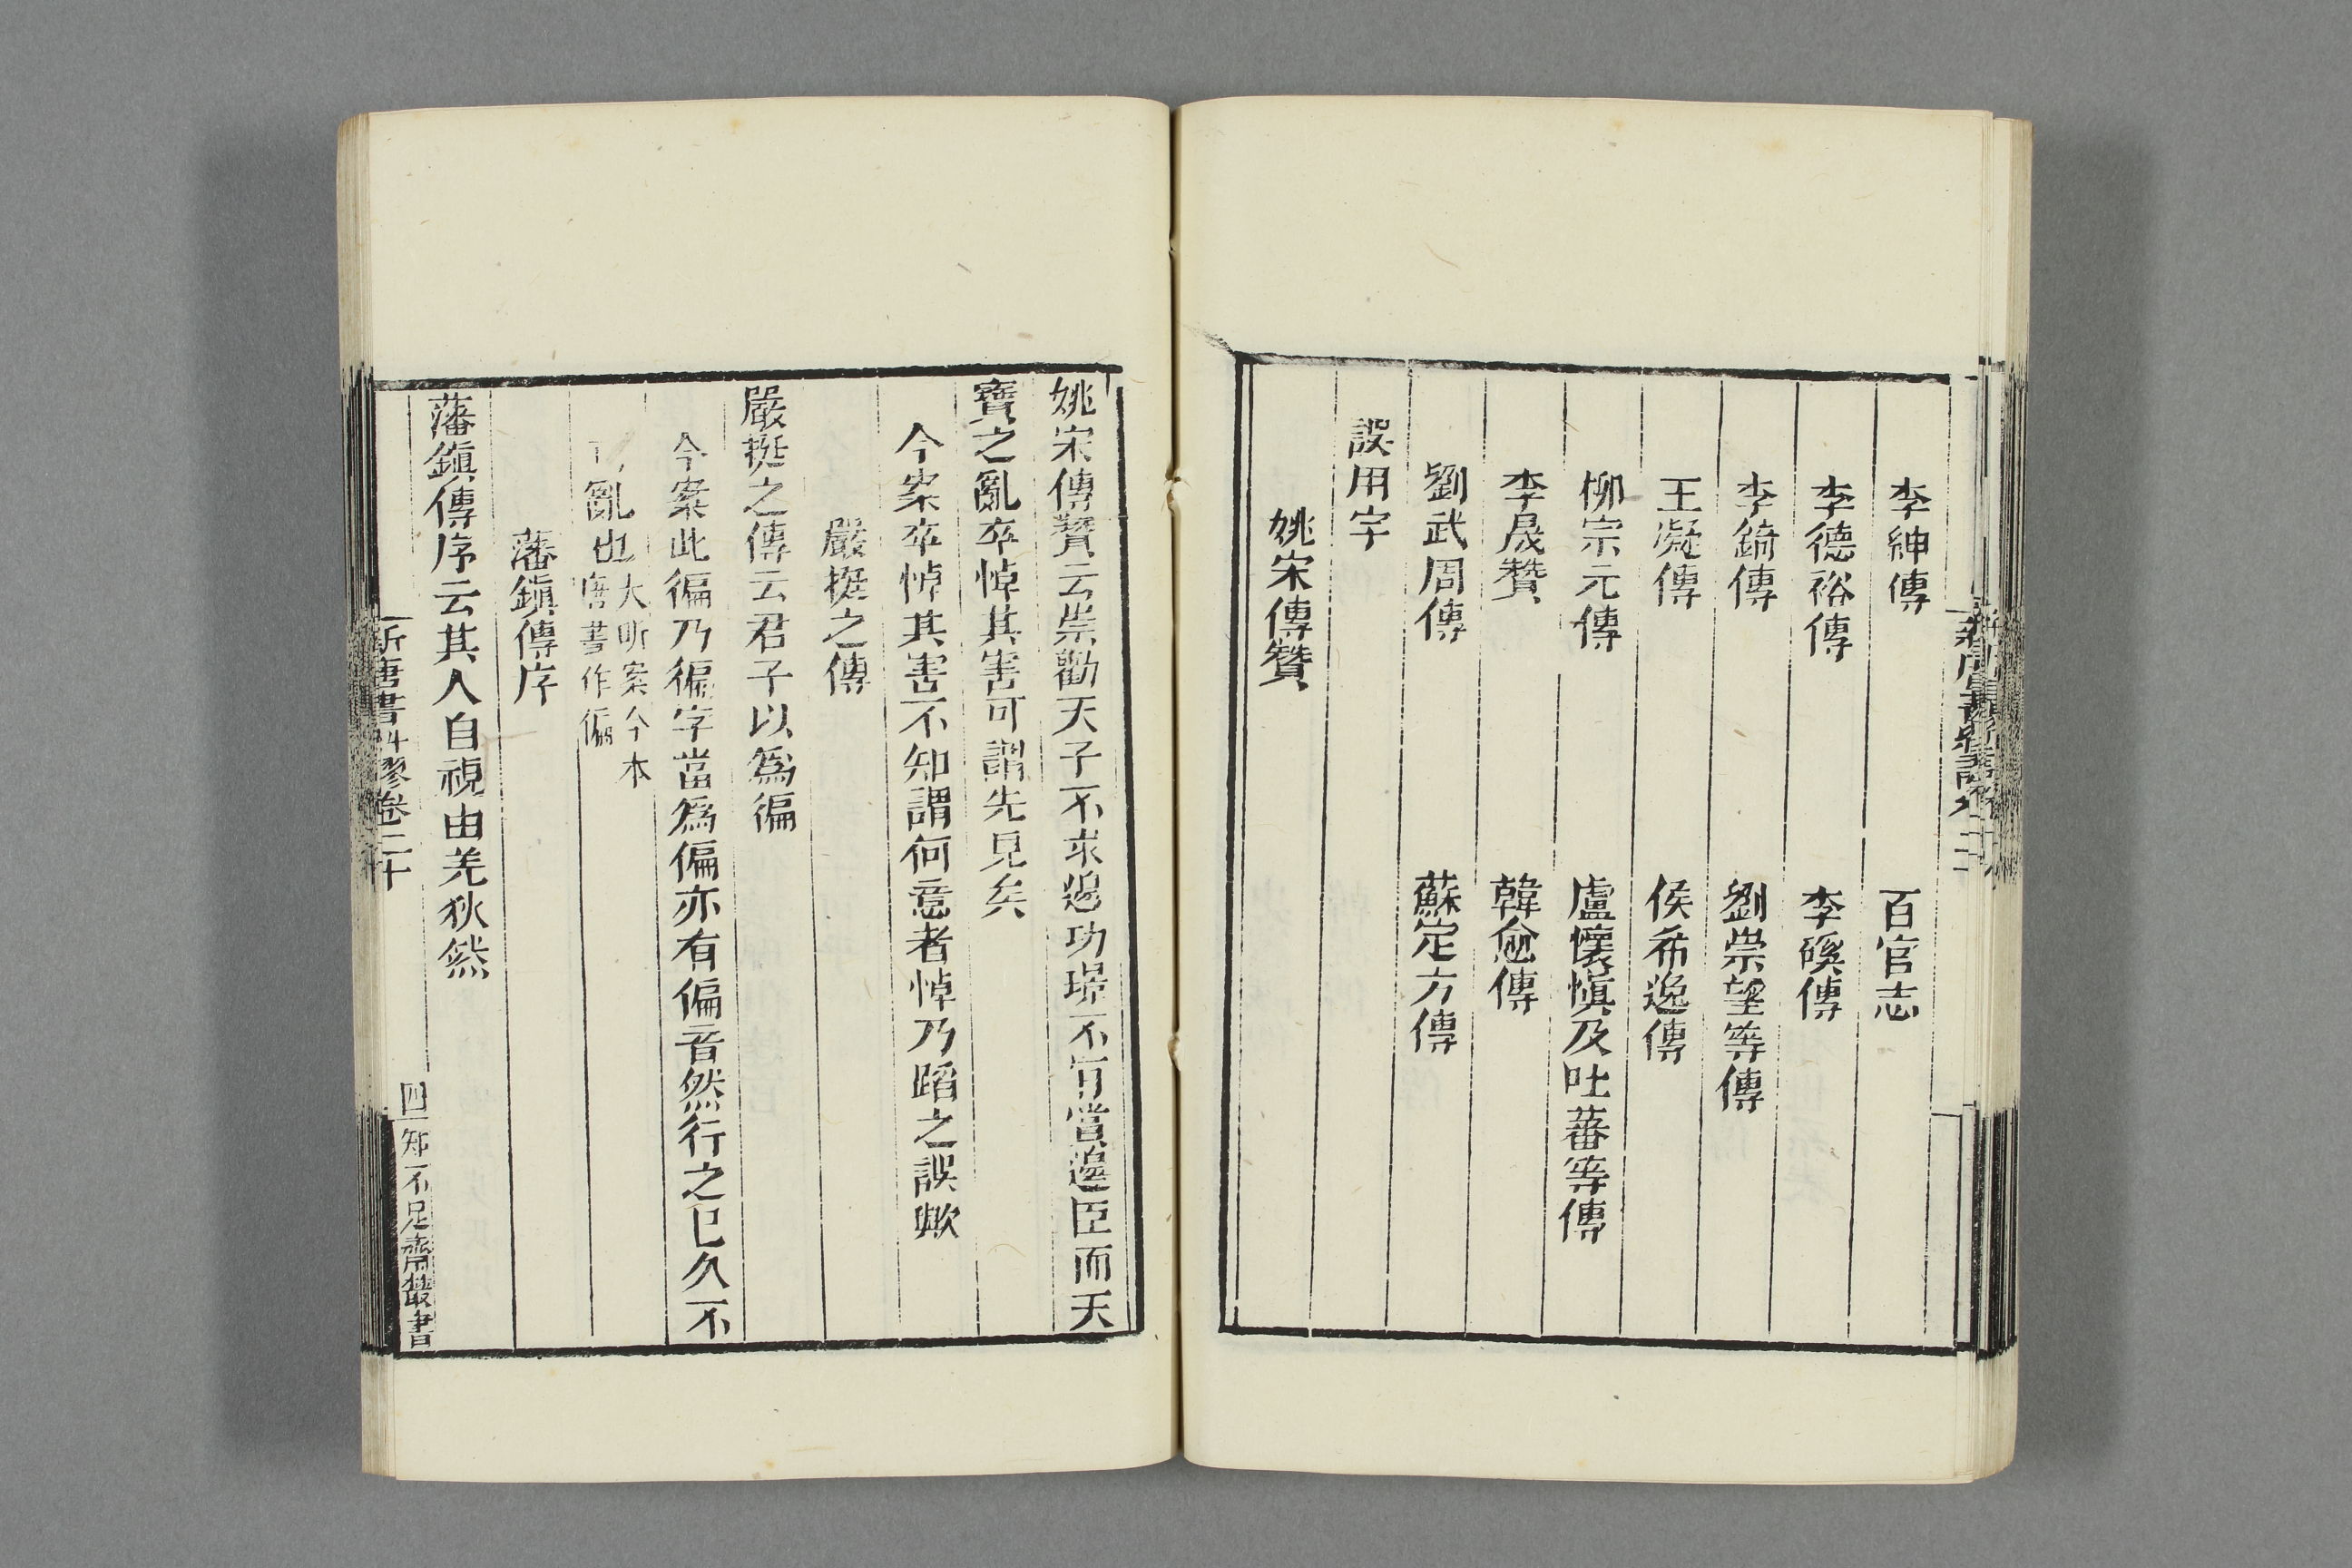 李紳傳 百官志
李德裕傳 李磎傳
李錡傳 劉崇望等傳
王凝傳 侯希逸傳
柳宗元傳 盧懷愼及吐蕃等傳
李晟贊 韓愈傳
劉武周傳 蘇定方傳
誤用字
姚宋傳贊
姚宋傳贊云崇勸天子不求邊功璟不肯賞邊臣而天
寶之亂卒悼其害可謂先見矣
今案卒悼其害不知謂何意者悼乃蹈之誤歟
嚴挺之傳
嚴挺之傳云君子以爲徧
今案此徧乃徧字當爲偏亦有偏音然行之已久不
亂也
大昕案今本
唐書作偏
藩鎭傳序
藩鎭傳序云其人自視由羌狄然
新唐書糾繆卷二十
四
知不足齋叢書